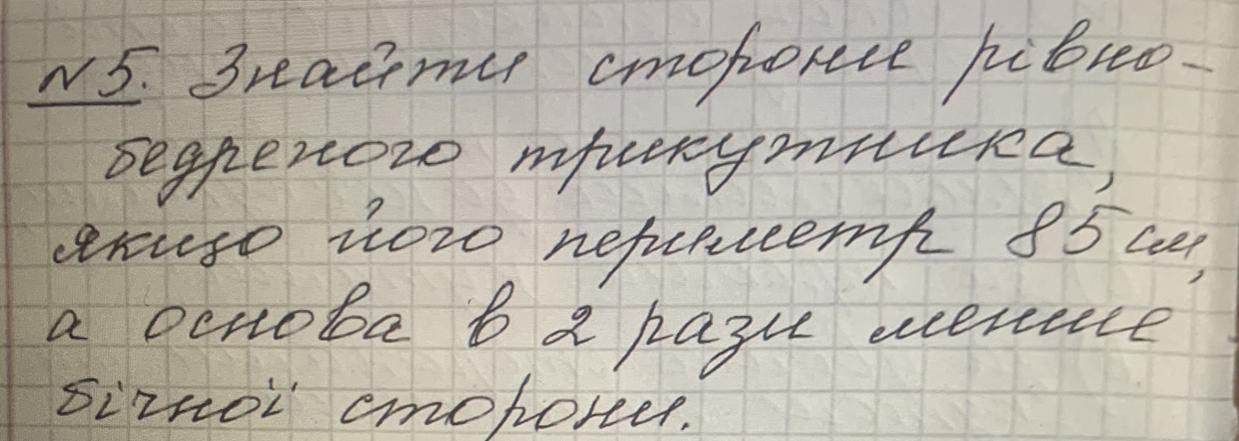 №5. Знайти сторони рівно-
бедреного трикутника,
якщо його периметр 85 см,
а основа в 2 рази менше
бічної сторони.